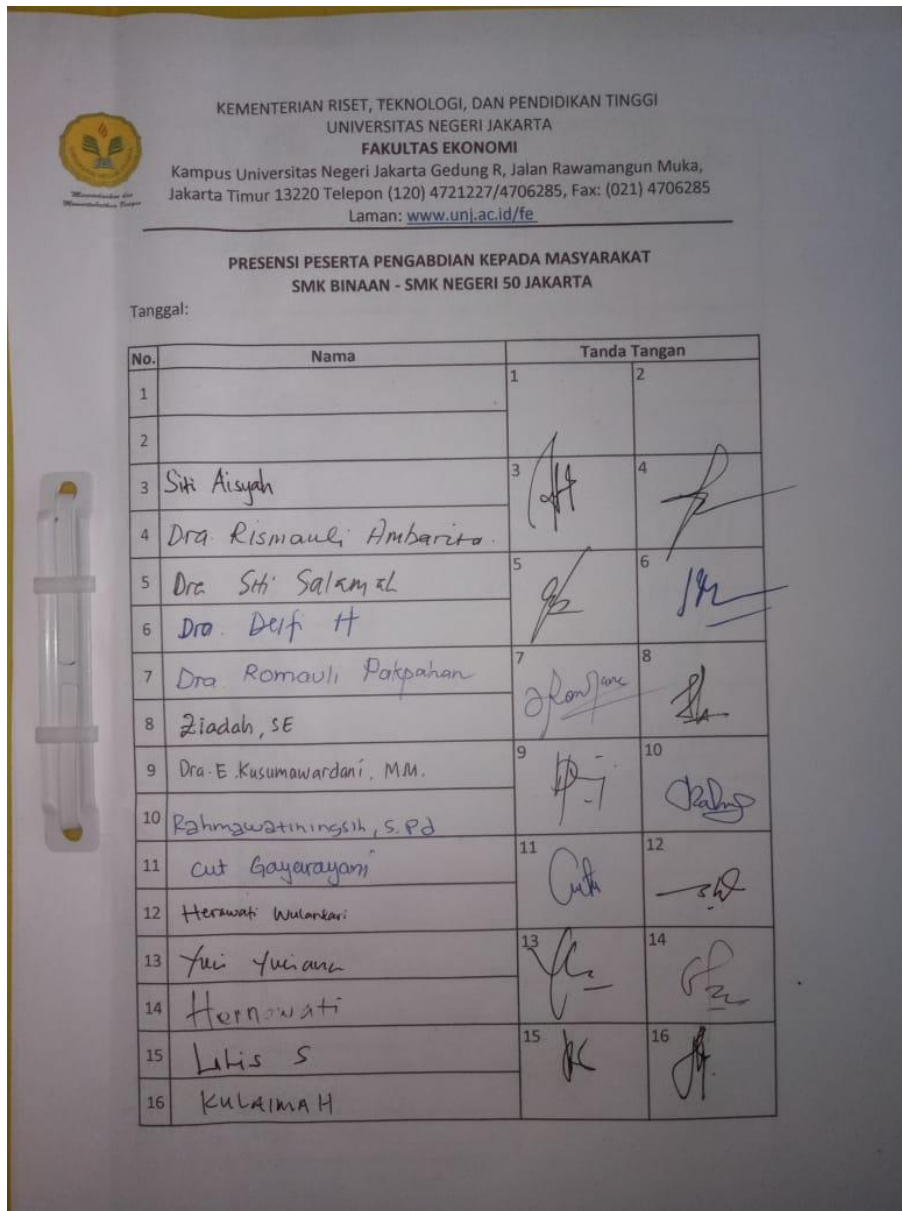 KEMENTERIAN RISET, TEKNOLOGI, DAN PENDIDIKAN TINGGI
UNIVERSITAS NEGERI JAKARTA
FAKULTAS EKONOMI
Kampus Universitas Negeri Jakarta Gedung R, Jalan Rawamangun Muka,
Jakarta Timur 13220 Telepon (120) 4721227/4706285, Fax: (021) 4706285
Laman: www.unj.ac.id/fe
PRESENSI PESERTA PENGABDIAN KEPADA MASYARAKAT
SMK BINAAN - SMK NEGERI 50 JAKARTA
Tanggal:
No. Nama Tanda Tangan
1 1 2
2
3 Siti Aisyah 3 4
4 Dra. Rismauli Ambarita.
5 Dra Siti Salamah 5 6
6 Dra. Delfi H
7 Dra Romauli Pakpahan 7 8
8 Ziadah, SE
9 Dra. E. Kusumawardani, MM. 9 10
10 Rahmawatiningsih, S.Pd
11 Cut 11 12
12 Herawati
13 Yuli 13 14
14 Hernawati
15 Lilis S 15 16
16 KULAIMAH